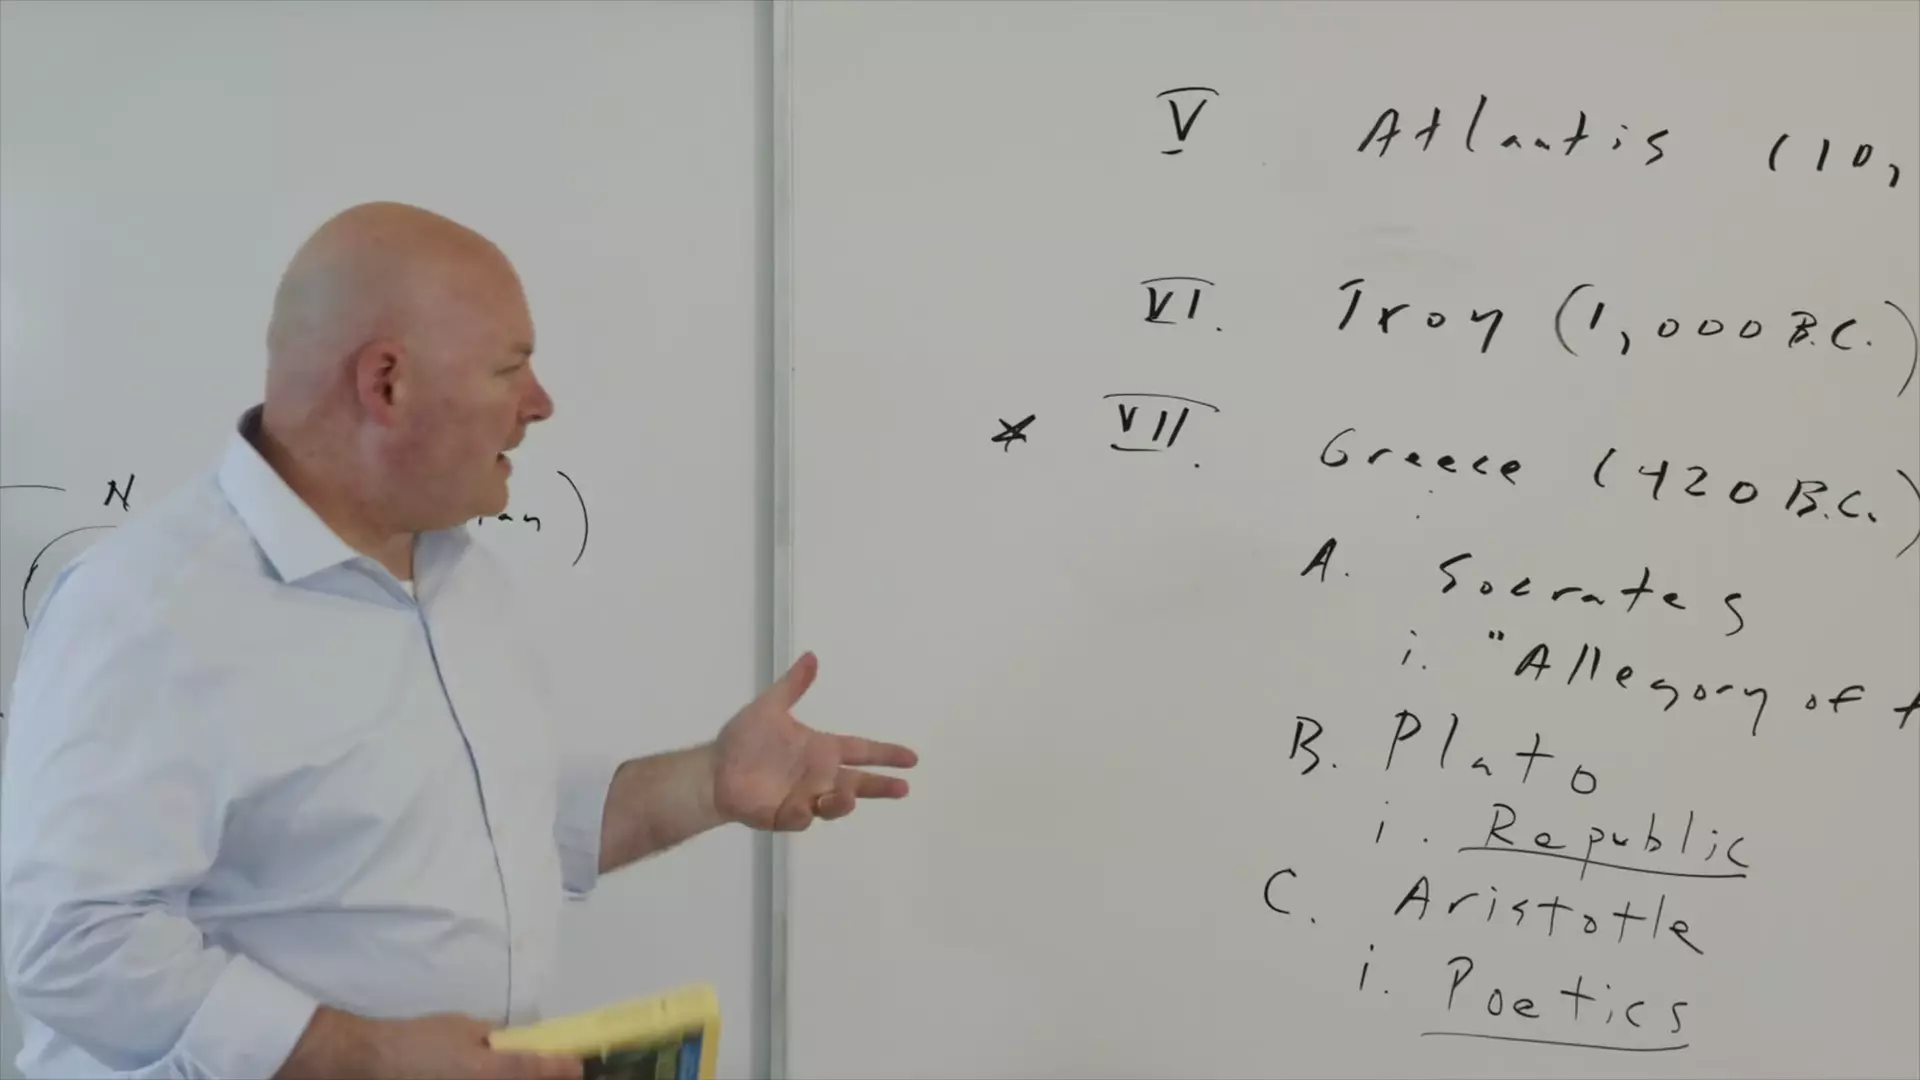 V Atlantis (10,
VI. Troy (1,000 B.C.)
* VII. Greece (420 B.C.)
A. Socrates
i. "Allegory of t
B. Plato
i. Republic
C. Aristotle
i. Poetics
N